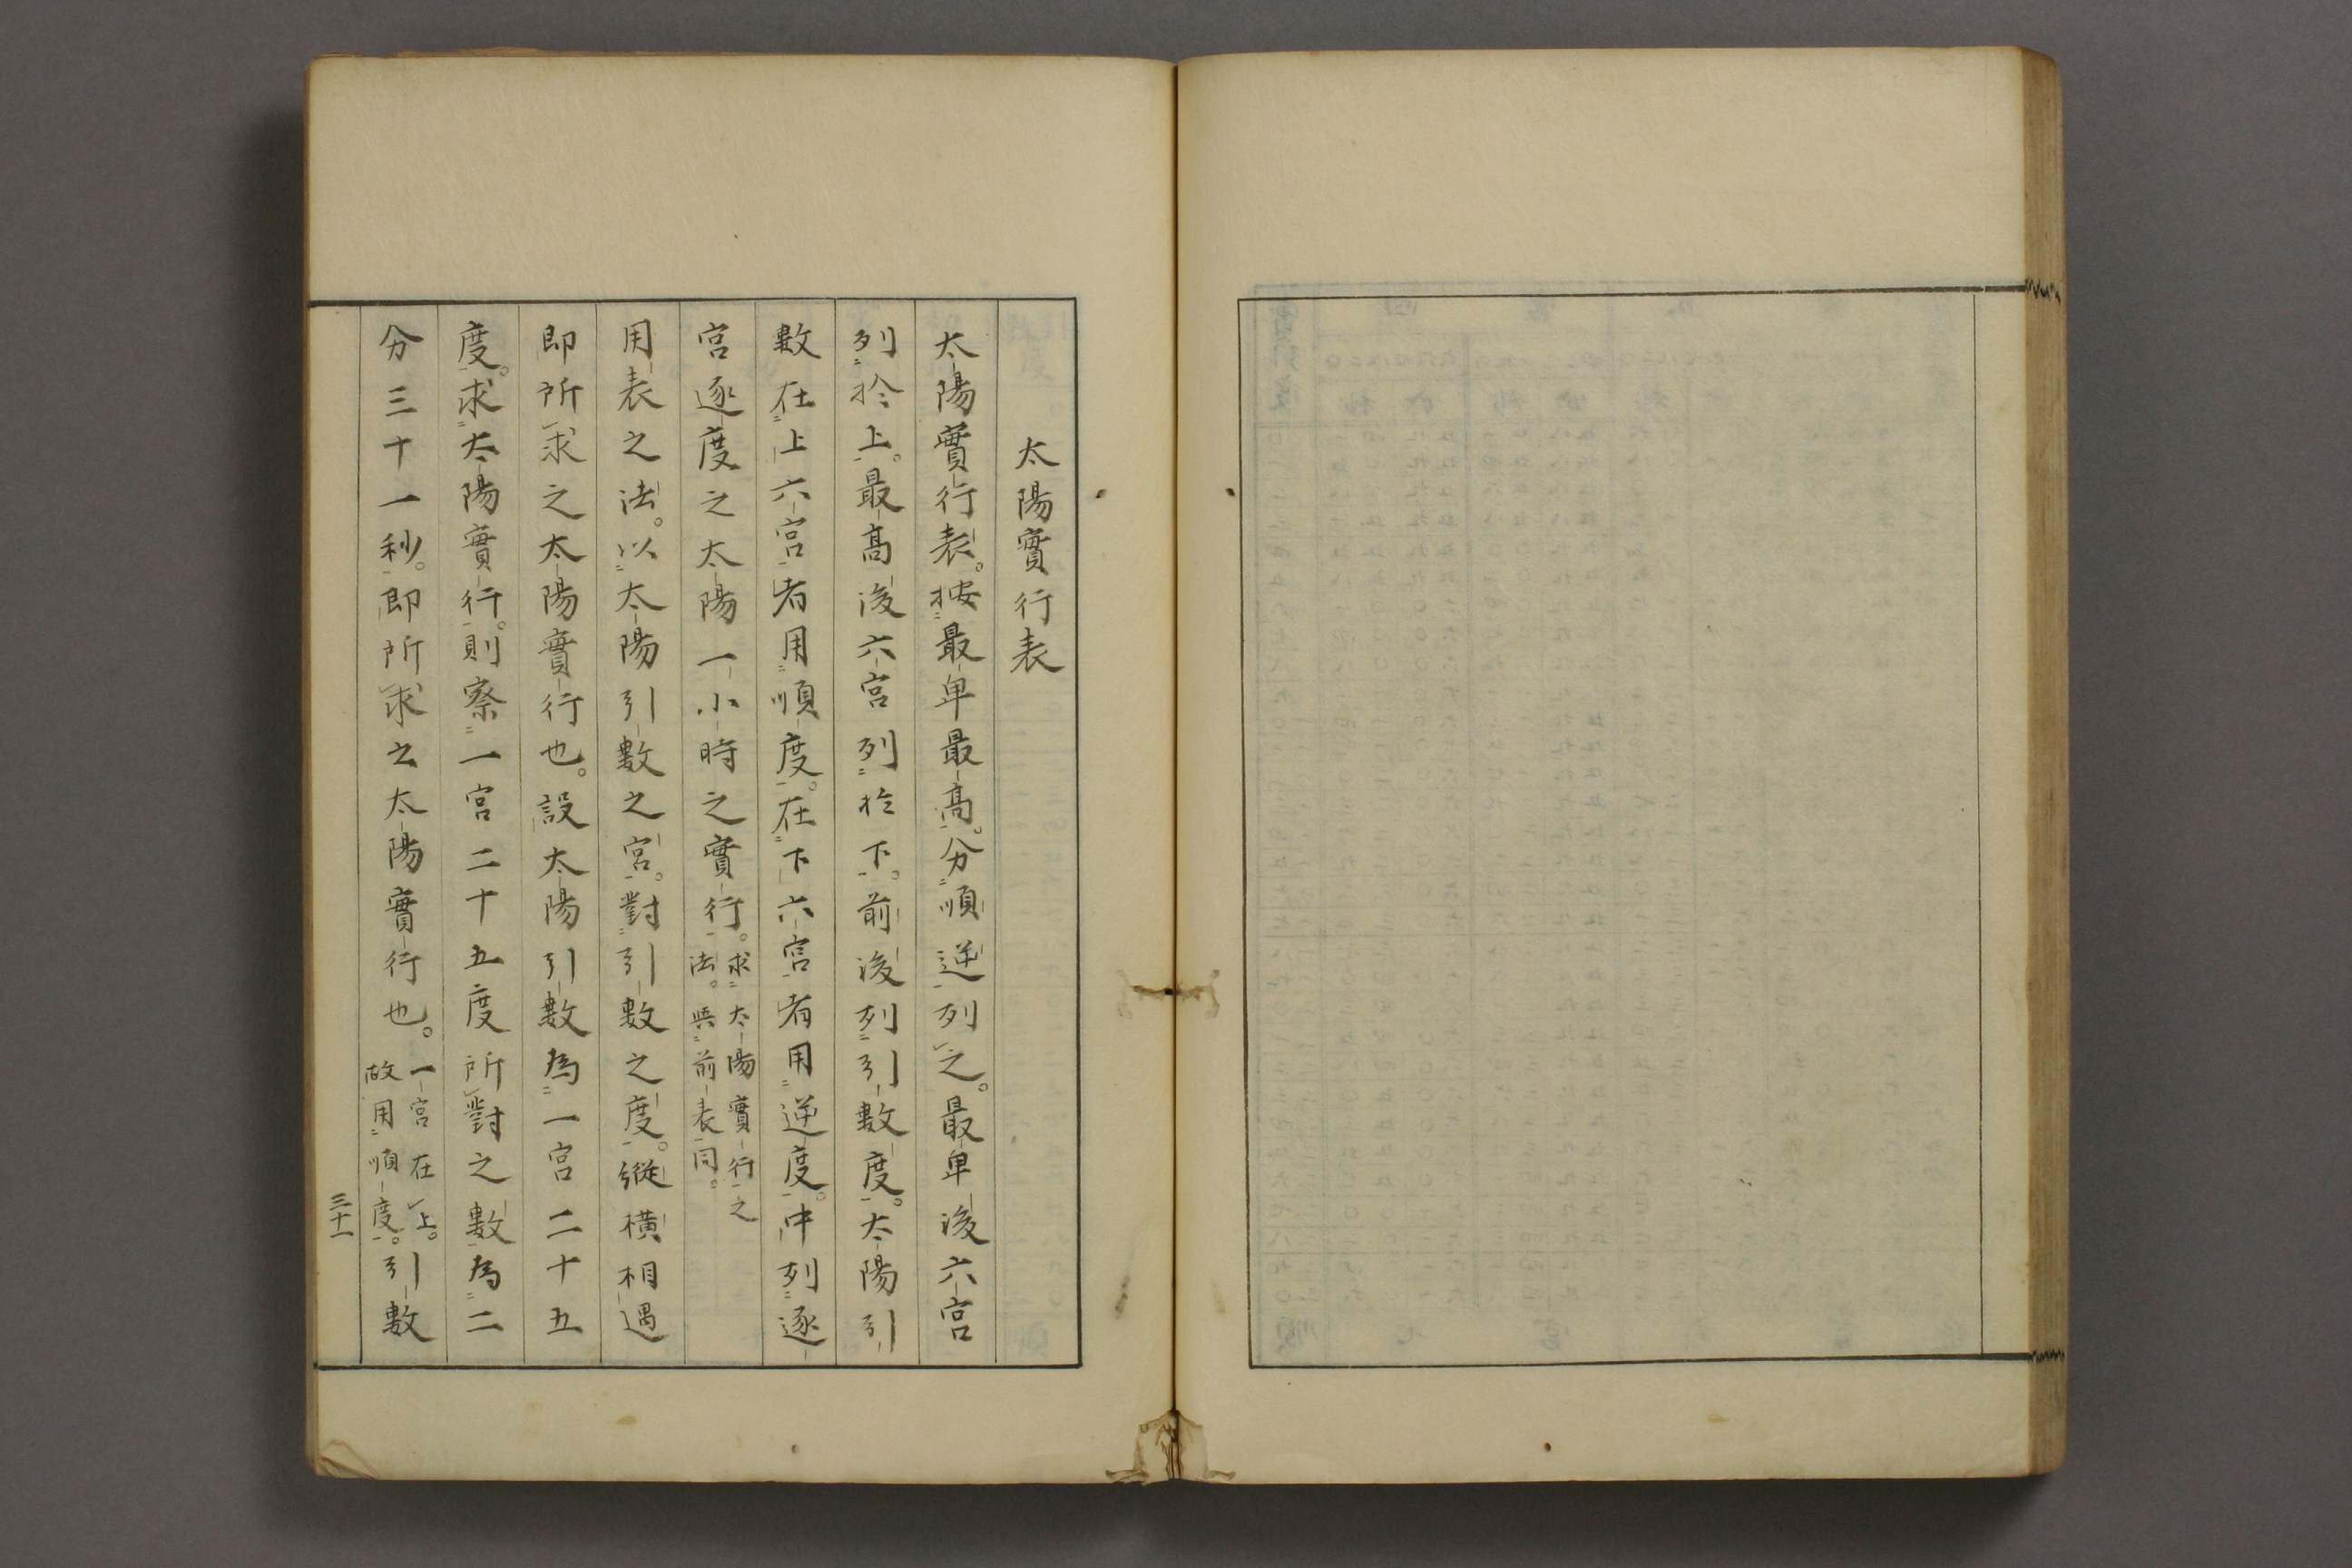 太陽實行表
太陽實行表。按最卑最高。分順逆列之。最卑後六宮
列於上。最高後六宮列於下。前後列引數度。太陽引
數在上六宮者用順度。在下六宮者用逆度。中列逐
宮逐度之太陽一小時之實行。求太陽實行之
法。與前表同。
用表之法。以太陽引數之宮。對引數之度。縱橫相遇
即所求之太陽實行也。設太陽引數為一宮二十五
度。求太陽實行。則察一宮二十五度所對之數為二
分三十一秒。即所求之太陽實行也。一宮在上。
故用順度。引數
三十一